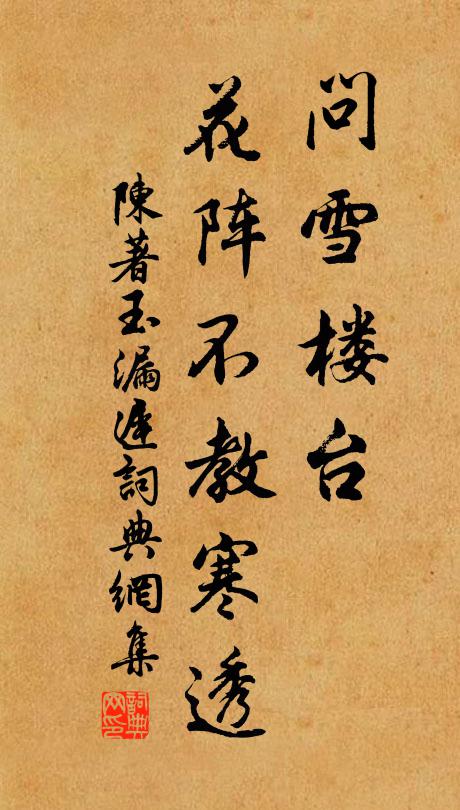 问雪楼台
花阵不教寒透
陳著玉漏遲詞典網集
詞典网印